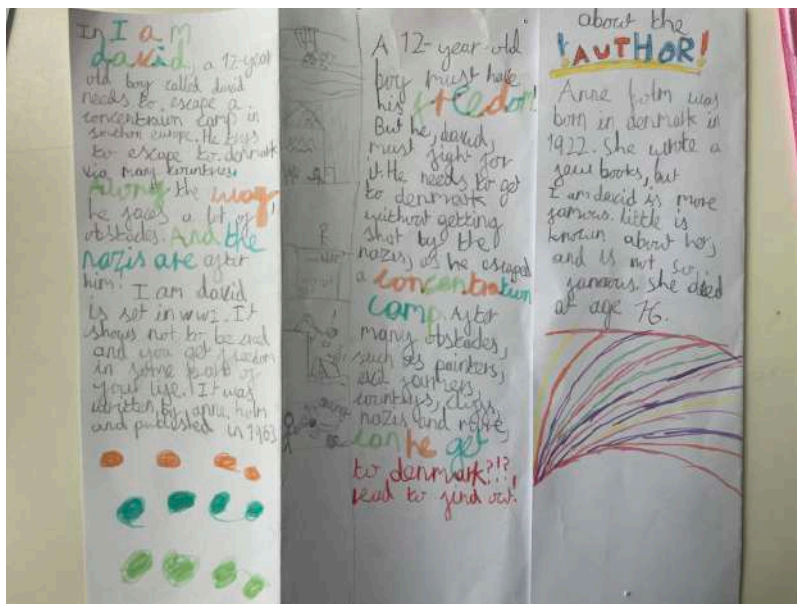 In I a m
david, a 12-year
old boy called david
needs to escape a
concentraun camp in
europe. He trys
to escape to denmark
via many kountries.
Along the way
he faces a lot of
obstacles. And the
nazis are after
him! I am david
is set in ww2. It
shows not to be sad
and you get freedom
in some part of
your life. It was
written by anne holm
and published in 1963
A 12-year-old
boy must have
his freedom!
But he, david,
must fight for
it. He needs to get
to denmark
without getting
shot by the
nazis, as he escaped
a concentration
camp. After
many obstacles,
such as painters,
evil farmers,
countrys, cliffs,
nazis and more,
can he get
to denmark?!?
read to find out!
about the
!AUTHOR!
Anne holm was
born in denmark in
1922. She wrote a
few books, but
I am david is more
famous. little is
known about her,
and is not so
famous. She died
at age 76.